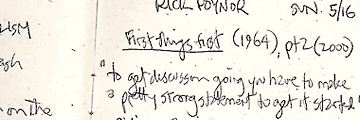 RICK POYNOR SUN. 5/16
First things first (1964), pt2 (2000)
ash
"to get discussion going you have to make
a pretty strong statement to get it started"
on the